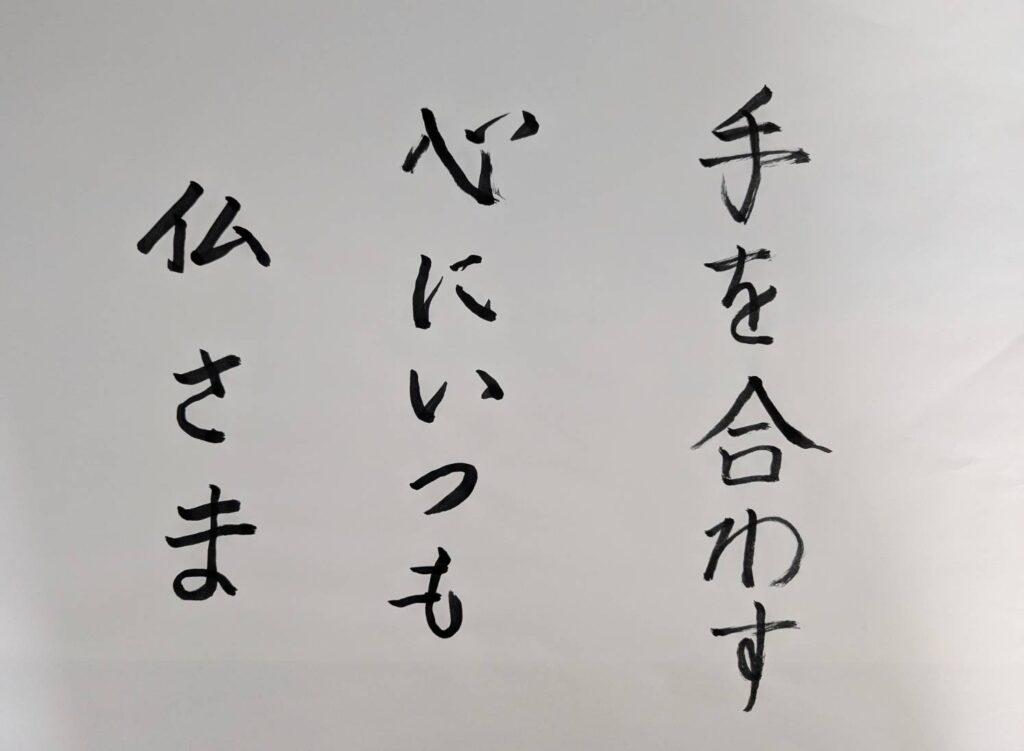 手を合わす
心にいつも
仏さま